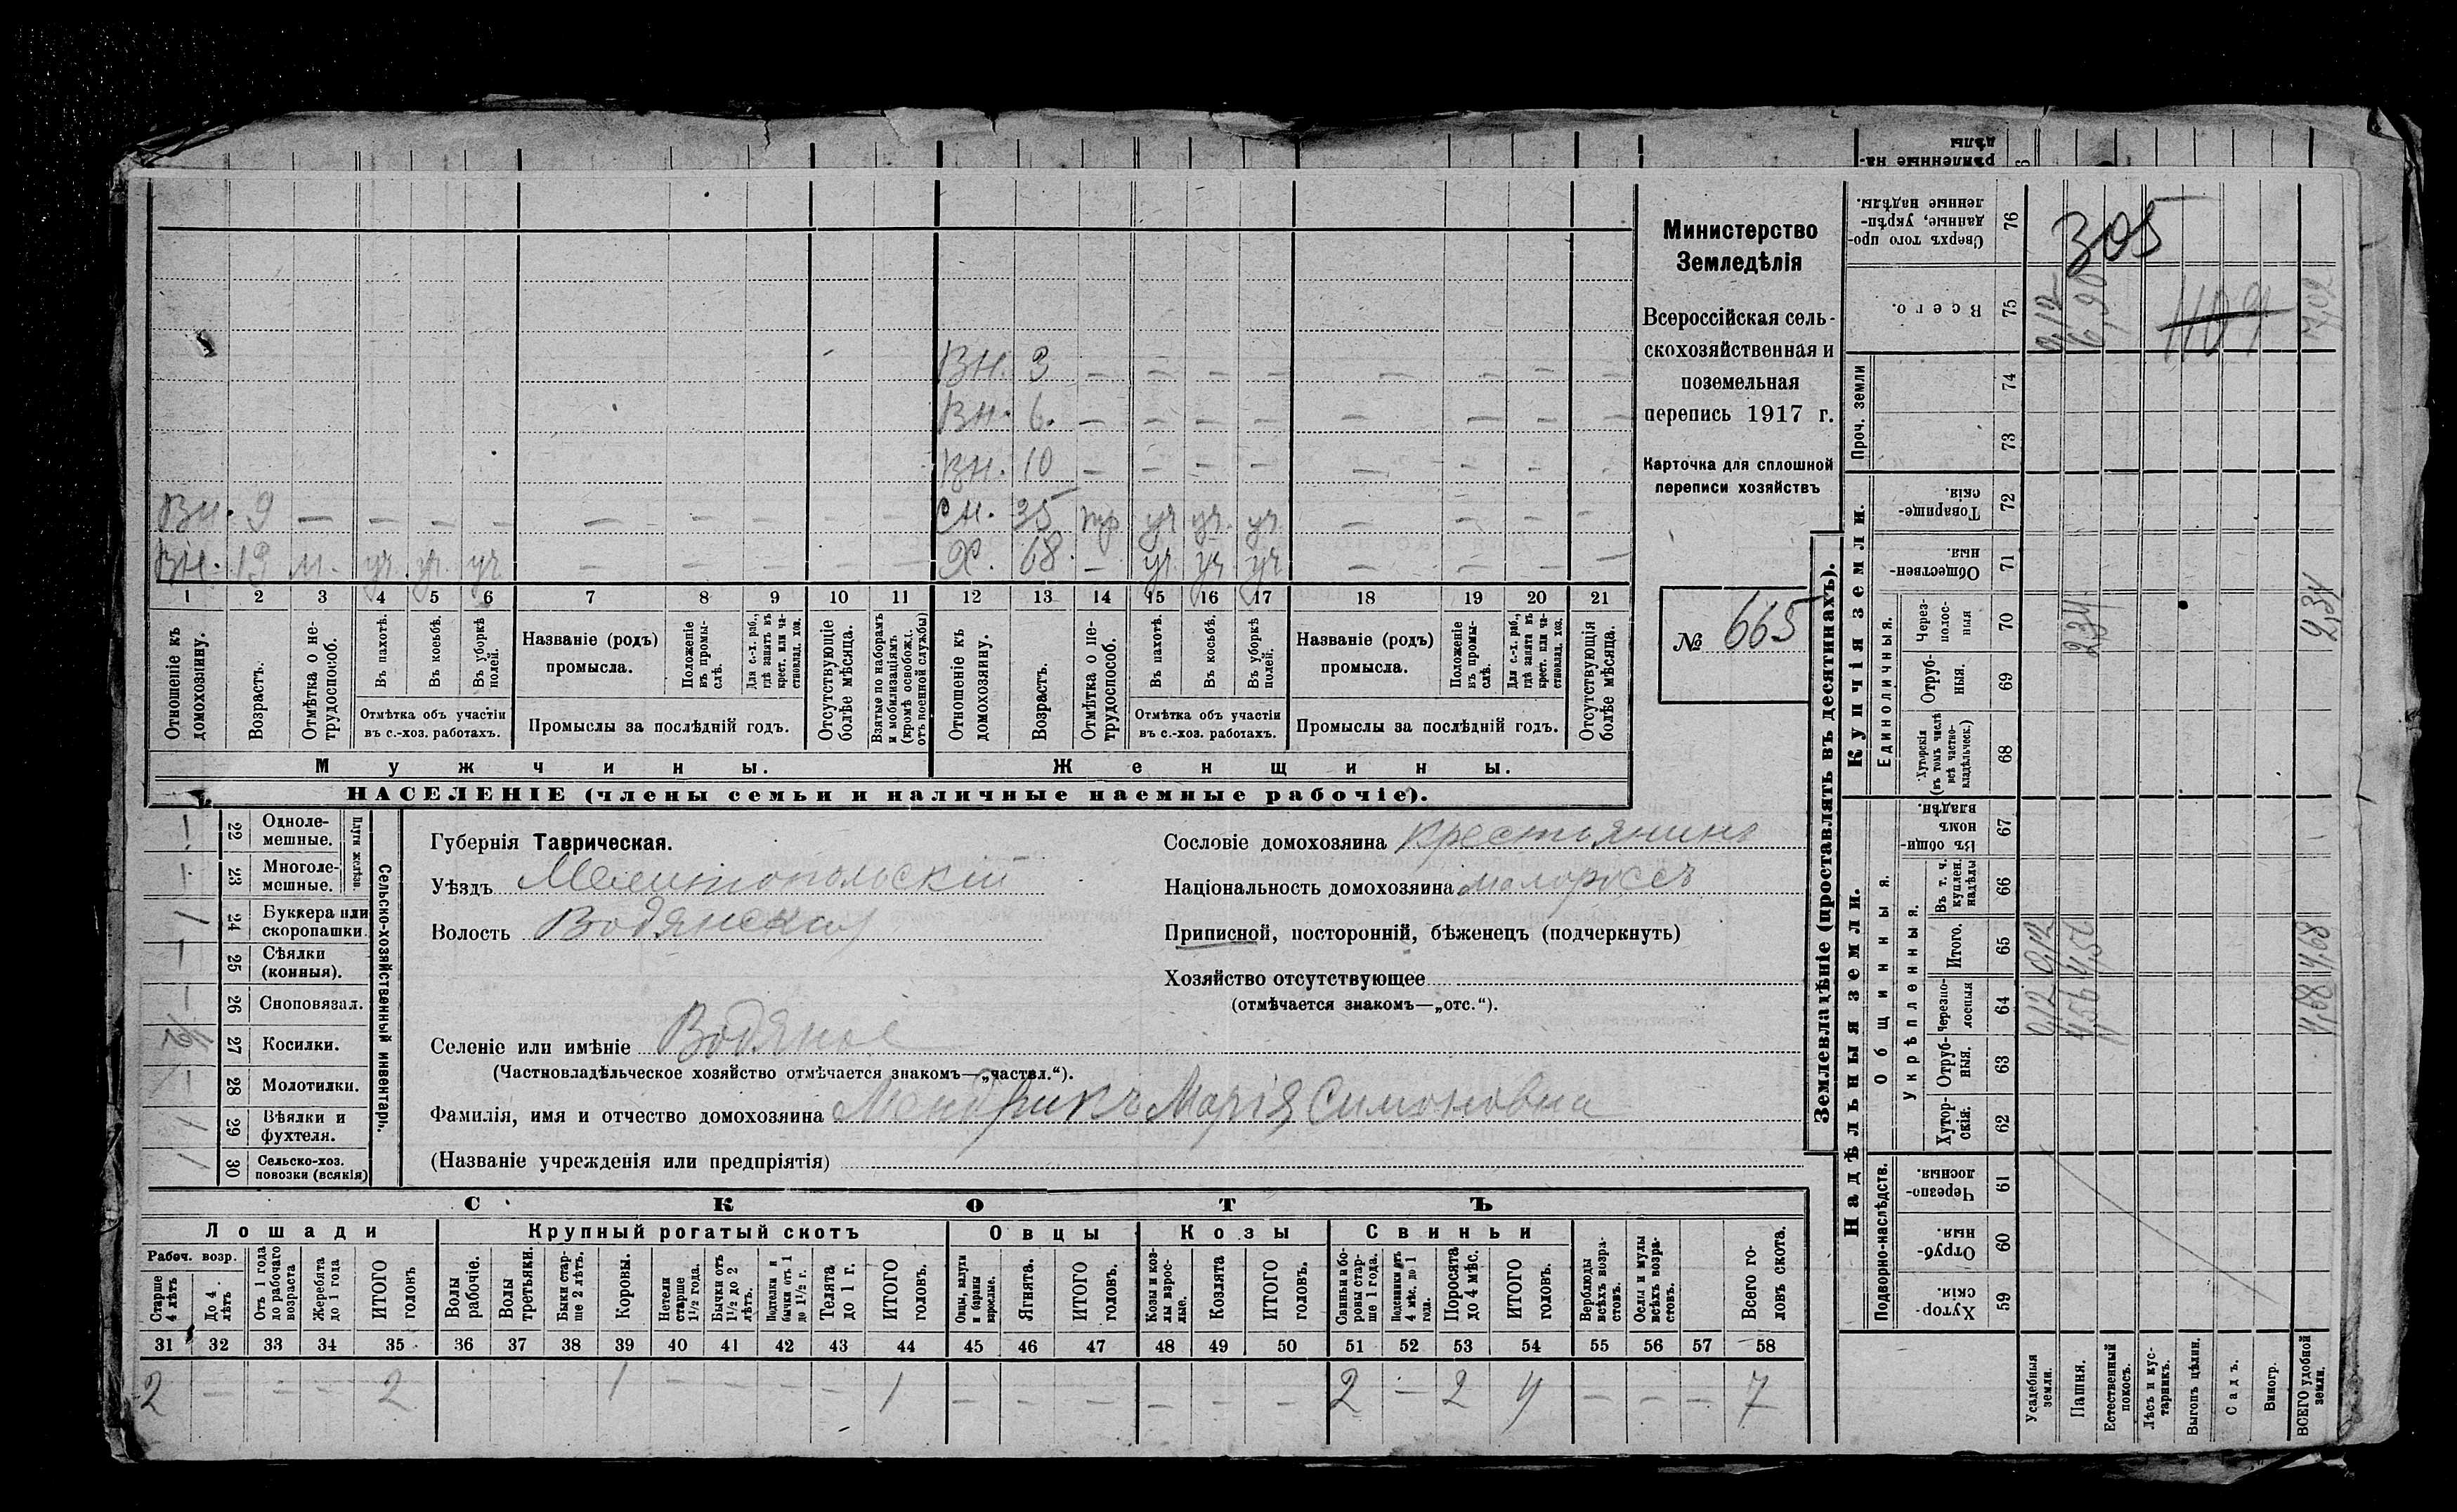 рѣпленные на-
дѣлы
Министерство
Земледѣлія
Всероссійская сель-
скохозяйственная и
поземельная
перепись 1917 г.
Карточка для сплошной
переписи хозяйствъ
№ 665
Вн. 3 — — — — — — — —
Вн. 6. — — — — — — — —
Вн. 10 — — — — — — — —
Вн. 9 — — — — — — — — —
Сн. 35 тр уч уч. уч. — — — —
Вн. 13 м. уч. уч. уч — — — — —
Х. 68. — уч. уч уч — — — —
1 2 3 4 5 6 7 8 9 10 11 12 13 14 15 16 17 18 19 20 21
Отношеніе къ домохозяину.
Возрастъ.
Отмѣтка о не-трудоспособ.
Въ пахотѣ.
Въ косьбѣ.
Въ уборкѣ полей.
Отмѣтка объ участіи
въ с.-хоз. работахъ.
Названіе (родъ)
промысла.
Положеніе въ промы-слѣ.
Для с.-х. раб., гдѣ занятъ въ крест. или ча-стновлад. хоз.
Промыслы за послѣдній годъ.
Отсутствующіе болѣе мѣсяца.
Взятые по наборамъ и мобилизаціямъ (кромѣ освобожд. отъ военной службы)
Отношеніе къ домохозяину.
Возрастъ.
Отмѣтка о не-трудоспособ.
Въ пахотѣ.
Въ косьбѣ.
Въ уборкѣ полей.
Отмѣтка объ участіи
въ с.-хоз. работахъ.
Названіе (родъ)
промысла.
Положеніе въ промы-слѣ.
Для с.-х. раб., гдѣ занята въ крест. или ча-стновлад. хоз.
Промыслы за послѣдній годъ.
Отсутствующія болѣе мѣсяца.
Мужчины.
Женщины.
НАСЕЛЕНІЕ (члены семьи и наличные наемные рабочіе).
Сельско-хозяйственный инвентарь.
Плуги желѣзн.
22 Одноле-мешные. —
23 Многоле-мешные. —
24 Буккера или скоропашки. 1
25 Сѣялки (конныя). —
26 Сноповязал. —
27 Косилки. 1/2
28 Молотилки. —
29 Вѣялки и фухтеля. 1
30 Сельско-хоз. повозки (всякія) 1
Губернія Таврическая.
Уѣздъ Мелитопольскій
Волость Водянская
Сословіе домохозяина крестьянинъ
Національность домохозяина малороссъ
Приписной, посторонній, бѣженецъ (подчеркнуть)
Хозяйство отсутствующее
(отмѣчается знакомъ—„отс.“).
Селеніе или имѣніе Водяное
(Частновладѣльческое хозяйство отмѣчается знакомъ—„частвл.“).
Фамилія, имя и отчество домохозяина Мендрикъ Марія Симоновна
(Названіе учрежденія или предпріятія)
СКОТЪ
Лошади
Крупный рогатый скотъ
Овцы
Козы
Свиньи
Рабоч. возр.
Старше 4 лѣтъ
До 4 лѣтъ
Отъ 1 года до рабочаго возраста
Жеребята до 1 года
ИТОГО головъ
Волы рабочіе.
Волы третьяки.
Быки стар-ше 2 лѣтъ.
Коровы.
Нетели старше 1½ года.
Бычки отъ 1½ до 2 лѣтъ.
Подтелки и бычки отъ 1 до 1½ г.
Телята до 1 г.
ИТОГО головъ.
Овцы, валухи и бараны взрослые.
Ягнята.
ИТОГО головъ.
Козы и коз-лы взрос-лые.
Козлята
ИТОГО головъ.
Свиньи и бо-ровы стар-ше 1 года.
Подсвинки отъ 4 мѣс. до 1 года.
Поросята до 4 мѣс.
ИТОГО головъ.
Верблюды всѣхъ возра-стовъ.
Ослы и мулы всѣхъ возра-стовъ.
Всего го-ловъ скота.
31 32 33 34 35 36 37 38 39 40 41 42 43 44 45 46 47 48 49 50 51 52 53 54 55 56 57 58
2 — — — 2 1 — — — — 1 — — — — — — 2 — 2 4 — — — 7
Землевладѣніе (проставлять въ десятинахъ).
Надѣльныя земли.
Купчія земли.
Проч. земли
Подворно-наслѣдств.
Общинныя.
Укрѣпленныя.
Единоличныя.
Сверхъ того про-данные, укрѣп-ленные надѣлы. 76
Всего. 75
74
73
Товарище-скія. 72
Обществен-ныя. 71
Через-полос-ныя 70
Отруб-ныя. 69
Хуторскія (въ томъ числѣ всѣ частно-владѣльческ.) 68
Въ общин-номъ владѣн. 67
Въ т. ч. куплен. надѣлы 66
Итого. 65
Черезпо-лосныя 64
Отруб-ныя. 63
Хутор-скія. 62
Черезпо-лосныя 61
Отруб-ныя. 60
Хутор-скія. 59
305
1109
0,12 6,90 7,02
2,34 2,34
0,12 4,56 4,68
0,12 4,56 4,68
Усадебныя земли.
Пашня.
Естественный покосъ.
Лѣсъ и кус-тарникъ.
Выгонъ цѣлин.
Садъ.
Виногр.
ВСЕГО удобной земли.